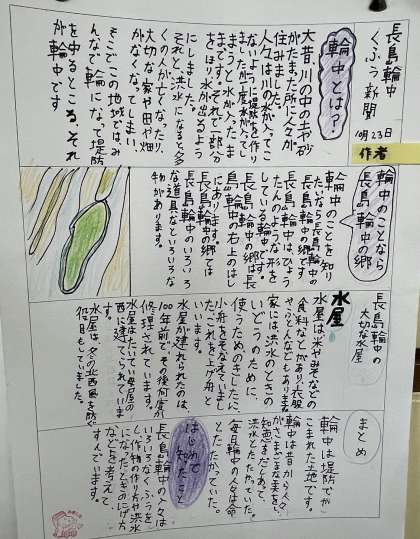 長島輪中
くふう新聞
10月23日
作者
輪中とは?
大昔、川の中の土や砂
がたまった所に人々が
住みました。
人々は川の水が入ってこ
ないように堤防を作り
ましたが一度水が入って
しまうと水が入ったま
まです。それで一部分
をほり、水が出るよう
にしました。
それと、洪水になると多
くの人が亡くなったり、
大切な家や田や畑
がなくなってしまい、
そこでこの地域では、み
んなで輪になって堤防
を守るところ、それ
が輪中です
輪中のことなら
長島輪中郷
輪中のことを知り
たいなら長島輪中の
輪中の郷です。
長島輪中は、ひょう
たんのような形を
している輪中です。
長島輪中の郷は長
島輪中の右上のはし
にあります。
長島輪中の郷では
長島輪中のいろいろ
な道具などいろいろな
物があります。
長島輪中の
大切な水屋
水屋
水屋は米やみそなどの
食料などがあり、衣服
やふとんなどもあります。
家には、洪水のときの
いどうのために、
使うためのきしたに、
小舟をそなえていまし
た。これを上げ舟と
いいます。
水屋が建てられたのは、
100年前で、その後何度か
修理されています。
水屋はたいてい母屋の
西に建てられていま
す。
水屋は、冬の北西風を防ぐ
役目もしていました。
まとめ
輪中は堤防でか
こまれた土地です。
輪中は昔から人々
がさまざまな実をい、
知恵をだしあって、
洪水とたたかっていた。
毎日輪中の人々は命
とたたかっていた。
はじめて
知ったこと
長島輪中の人々は
いろいろなくふうを
し、作物の作り方や洪水
になったときのにげ方
などを考えて
すんでいます。